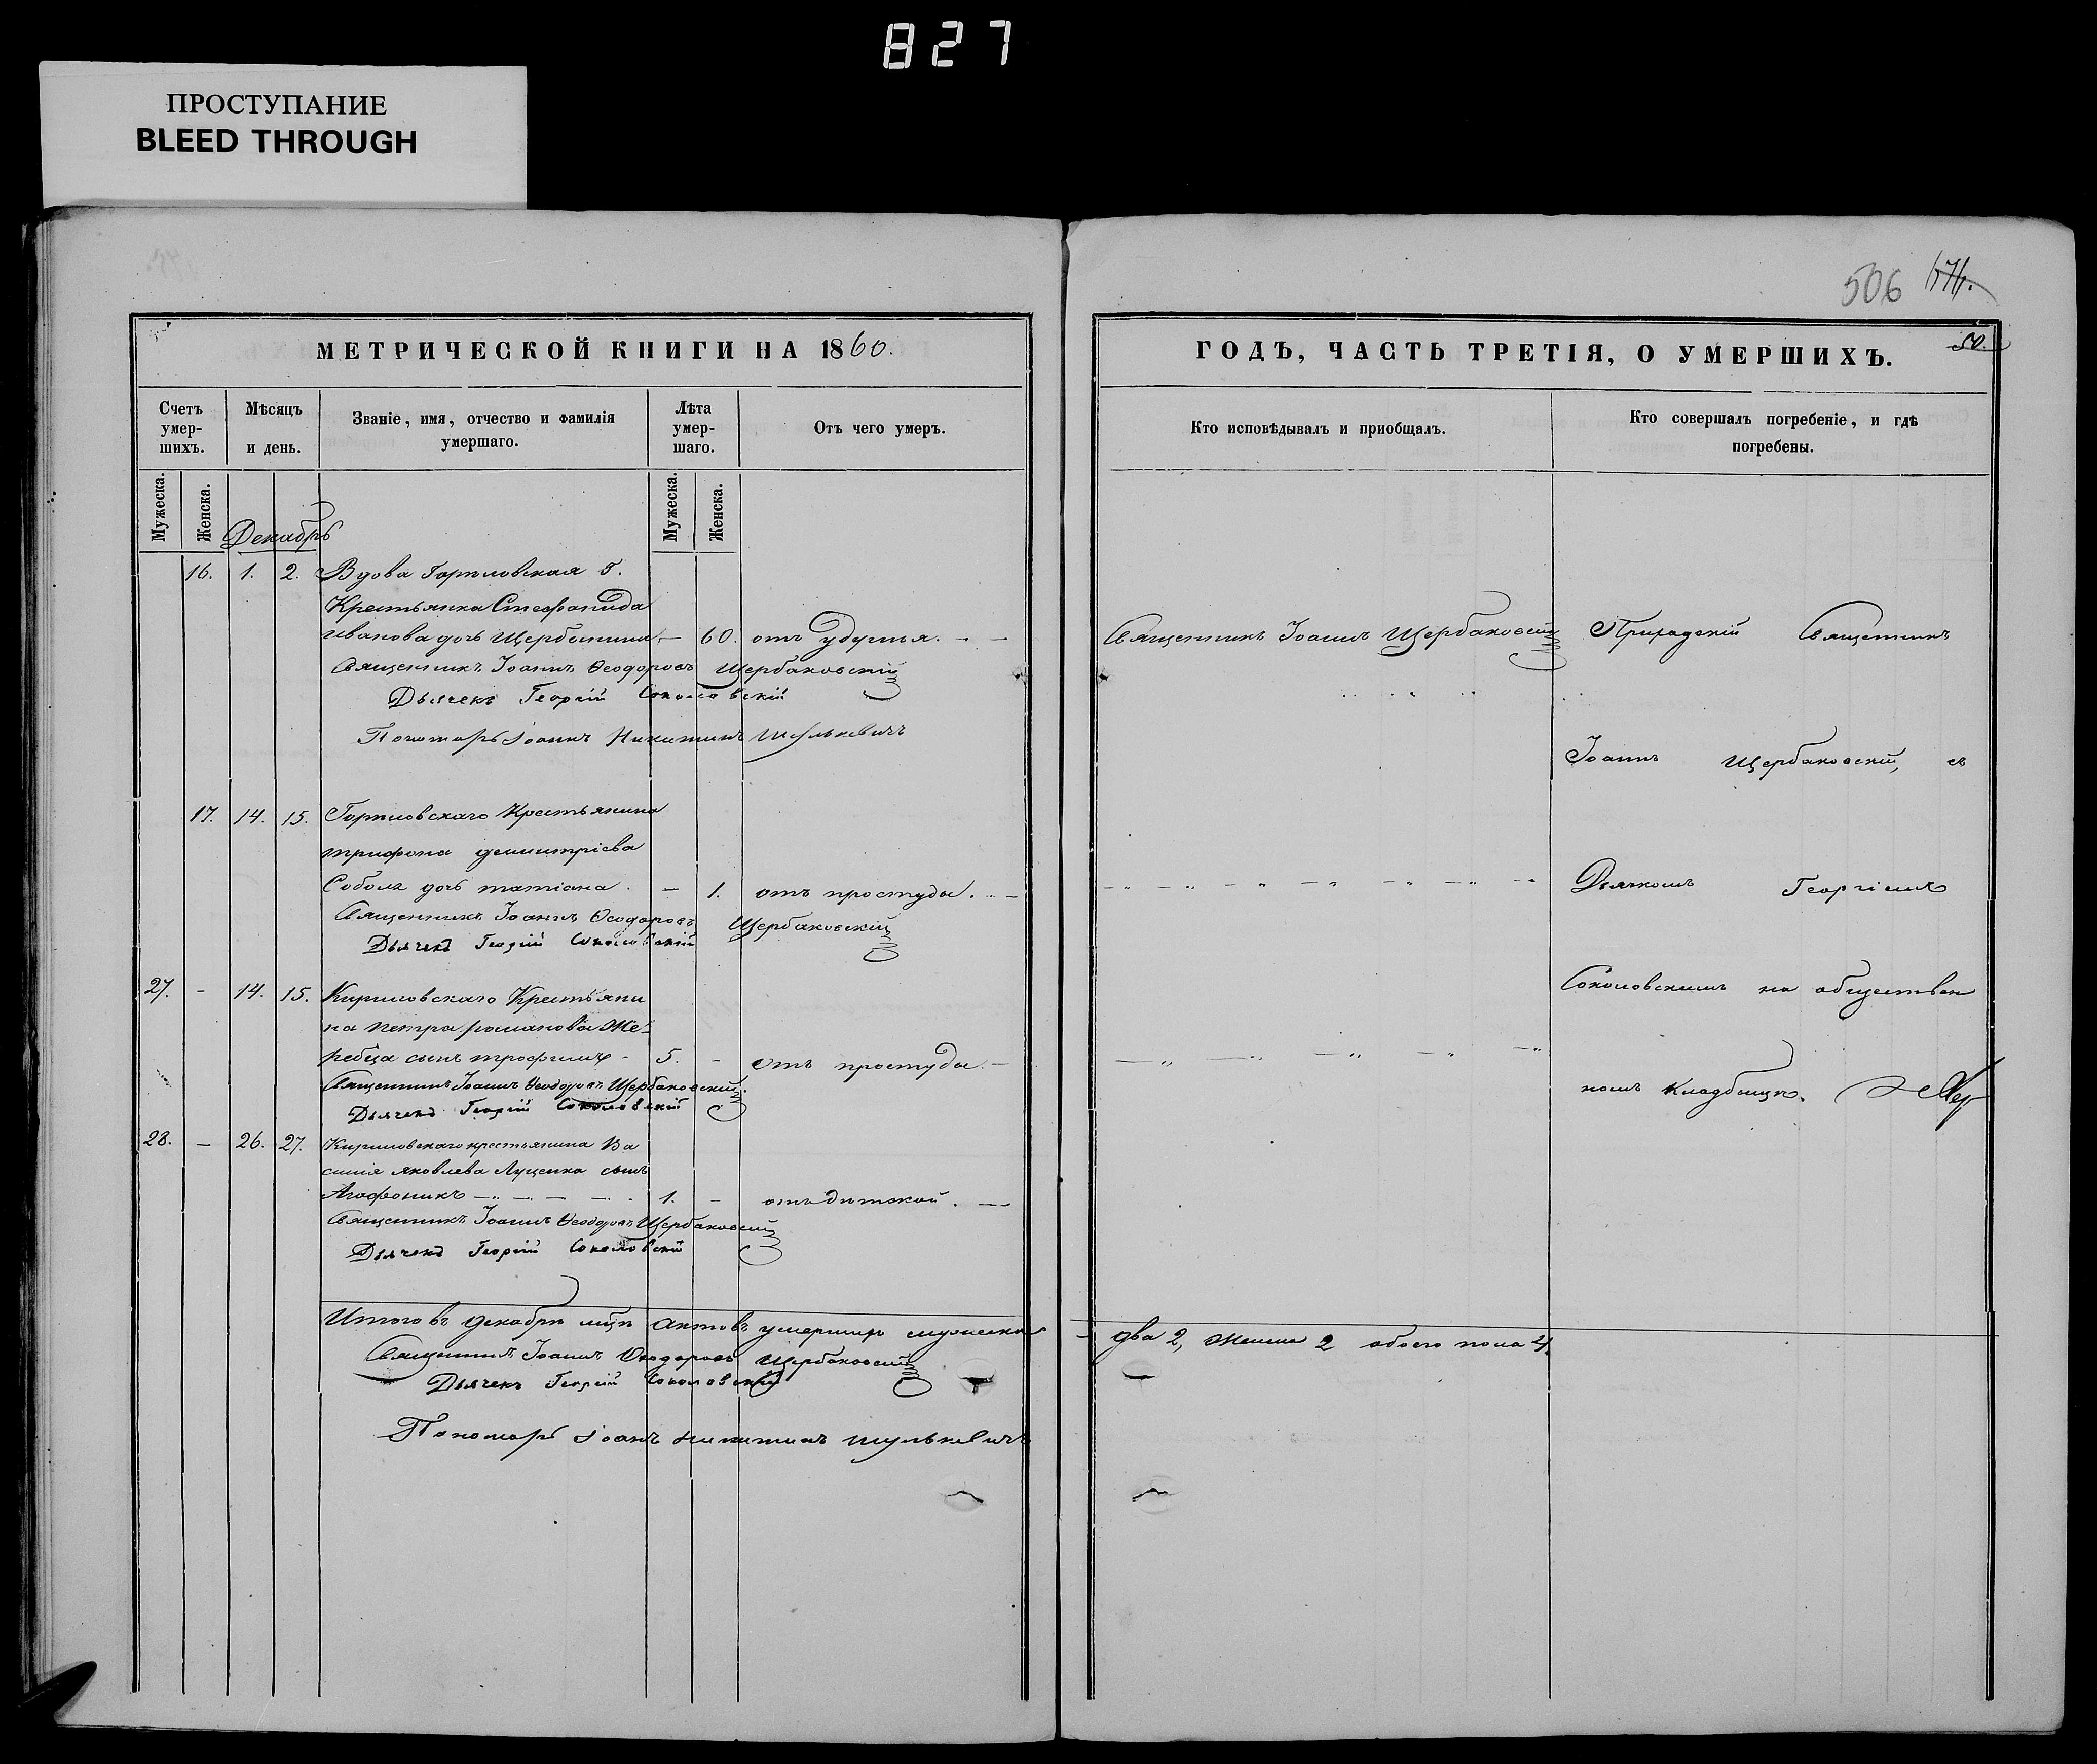 827
ПРОСТУПАНИЕ
BLEED THROUGH
506
50.
МЕТРИЧЕСКОЙ КНИГИ НА 1860.
ГОДЪ, ЧАСТЬ ТРЕТІЯ, О УМЕРШИХЪ.
Счетъ умер-шихъ.
Мѣсяцъ и день.
Званіе, имя, отчество и фамилія умершаго.
Лѣта умер-шаго.
Отъ чего умеръ.
Кто исповѣдывалъ и приобщалъ.
Кто совершалъ погребеніе, и гдѣ погребены.
Мужеска.
Женска.
Мужеска.
Женска.
Декабрь
16. 1. 2. Вдова
Крестьянка Стефанида
Иванова дочь Щербинина — 60. отъ удушья. - -
Священникъ Іоаннъ Ѳеодоровъ Щербаковскій
Дьячекъ Георгій Соколовскій
Пономарь Іоаннъ Никитинъ Шулькевичъ
17. 14. 15. Крестьянина
трифона димитріева
Соболя дочь татіана. — 1. отъ простуды. -
Священникъ Іоаннъ Ѳеодоровъ Щербаковскій
Дьячекъ Георгій Соколовскій
27. - 14. 15. Кириловскаго Крестьяни
на петра романова Же-
ребца сынъ трофимъ - 5. - отъ простуды. -
Священникъ Іоаннъ Ѳеодоровъ Щербаковскій
Дьячекъ Георгій Соколовскій
28. — 26. 27. Кириловскаго крестьянина Ва
силія яковлева Луценка сынъ
Агафоникъ 1. - отъ дѣтской. —
Священникъ Іоаннъ Ѳеодоровъ Щербаковскій
Дьячекъ Георгій Соколовскій
Итого въ декабрѣ мцѣ актовъ умершихъ мужеска
Священникъ Іоаннъ Ѳеодоровъ Щербаковскій
Дьячекъ Георгій Соколовскій
Пономарь Іоаннъ никитинъ шулькевичъ
Священникъ Іоаннъ Щербаковскій
два 2, женска 2 обоего пола 4.
Приходскій Священникъ
Іоаннъ Щербаковскій, съ
Дьячкомъ Георгіемъ
Соколовскимъ на обществен
номъ кладбищѣ.